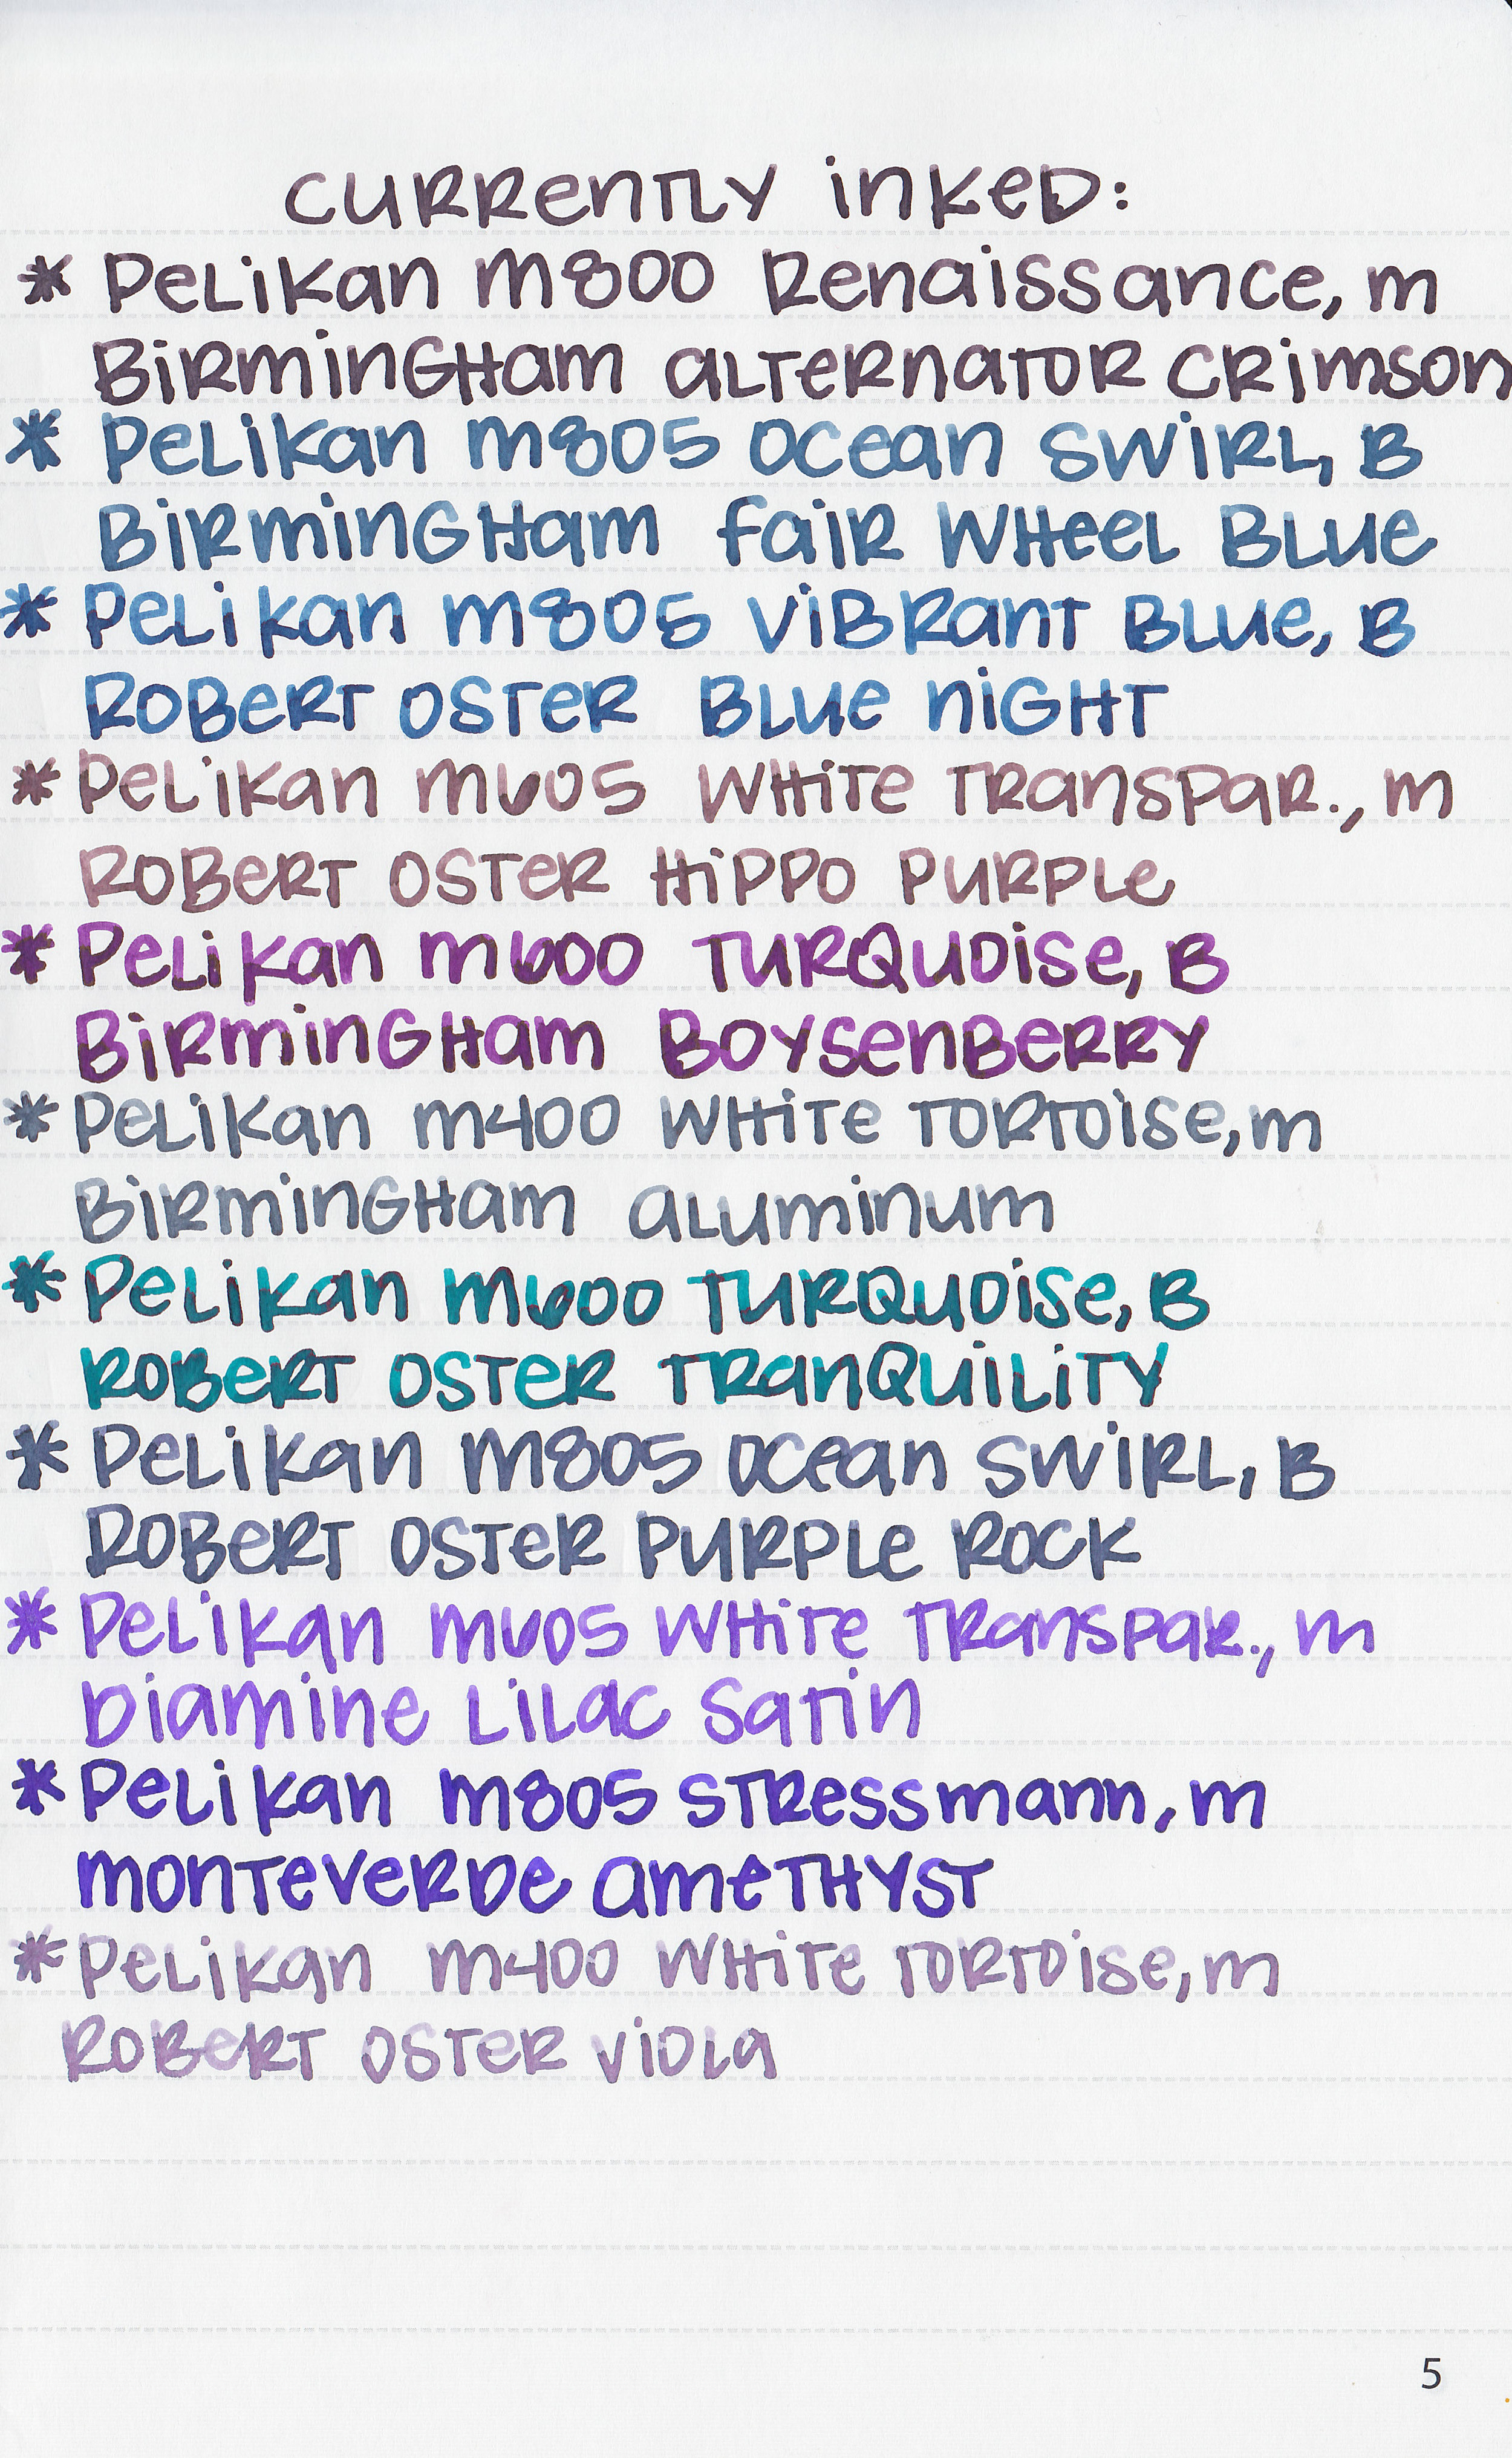 CURRenTLY inKeD:
* PeLiKan m800 Renaissance, m
BiRminGHam aLTeRnaTOR CRimson
* PeLiKan m805 Ocean SwiRL, B
BiRminGHam FaiR WHeeL BLue
* PeLiKan m805 ViBRanT BLue, B
ROBeRT OSTeR BLue niGHT
* PeLiKan m605 WHiTe TRansPaR., m
ROBeRT OSTeR HiPPO PuRPLe
* PeLiKan m600 TuRQuOise, B
BiRminGHam BOYSenBeRRY
* PeLiKan m400 WHiTe TORTOise, m
BiRminGHam aLuminum
* PeLiKan m600 TuRQuOise, B
ROBeRT OSTeR TRanQuiLiTY
* PeLiKan m805 Ocean SwiRL, B
ROBeRT OSTeR PuRPLe ROCK
* PeLiKan m605 WHiTe TRansPaR., m
Diamine LiLac SaTin
* PeLiKan m805 STRessmann, m
monTeVeRDe ameTHYST
* PeLiKan m400 WHiTe TORTOise, m
ROBeRT OSTeR ViOLa
5